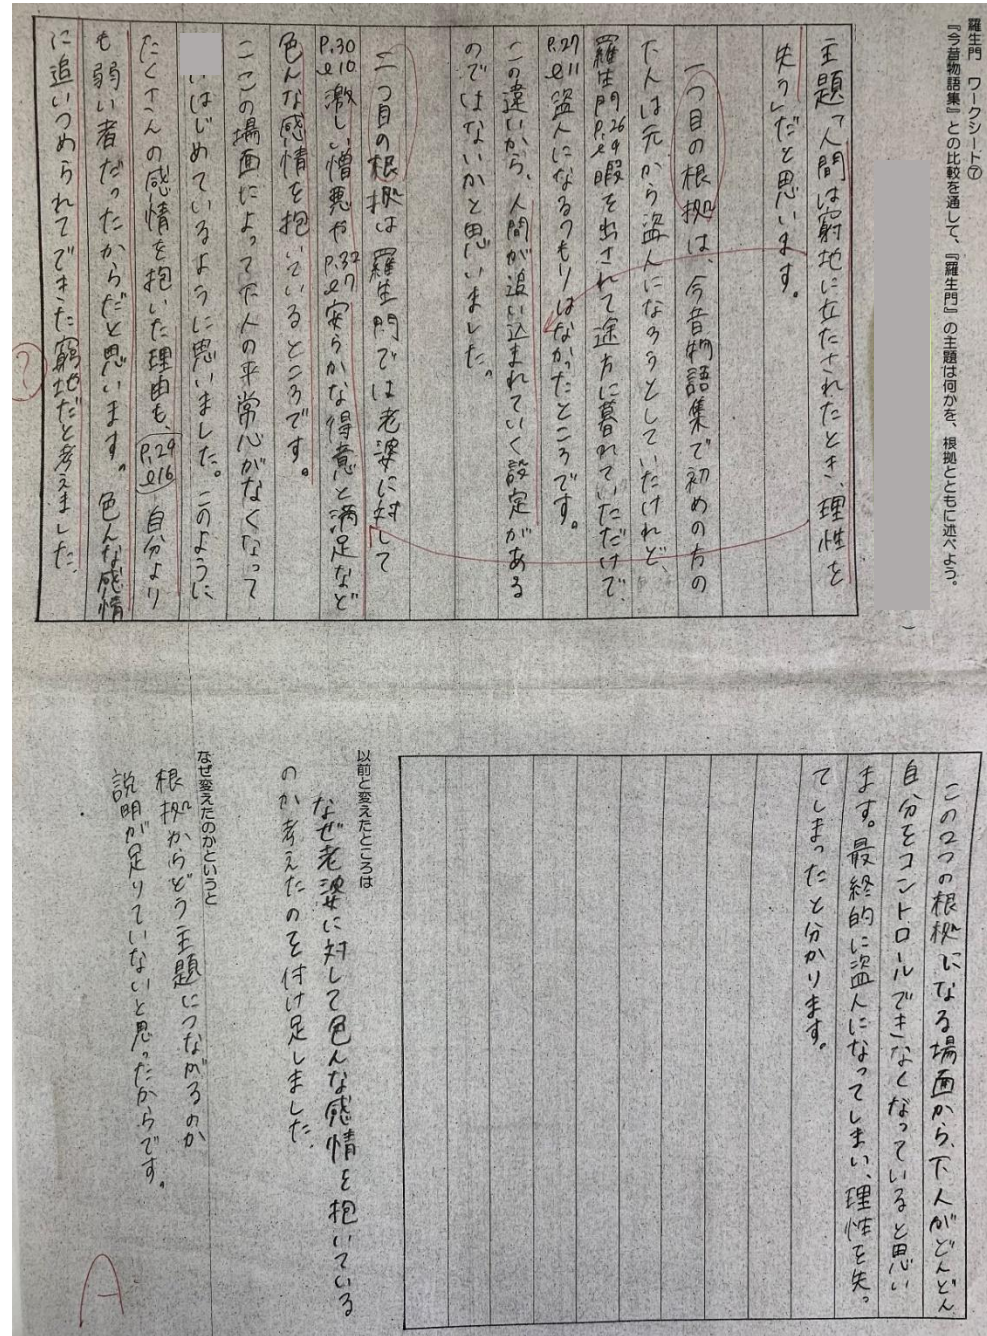 羅生門 ワークシート⑦
『今昔物語集』との比較を通して、『羅生門』の主題は何かを、根拠とともに述べよう。
)
主題「人間は窮地に立たされたとき、理性を
失う」だと思います。
一つ目の根拠は、今昔物語集で初めの方の
下人は元から盗人になろうとしていたけれど、
羅生門P.26 l.9暇を出されて途方に暮れていただけで、
P.27 l.11盗人になるつもりはなかったところです。
この違いから、人間が追い込まれていく設定がある
のではないかと思いました。
二つ目の根拠は羅生門では老婆に対して
P.30 l.10激しい憎悪やP.32 l.7安らかな得意と満足など
色んな感情を抱いているところです。
ここの場面によって下人の平常心がなくなって
はじめているように思いました。このように
たくさんの感情を抱いた理由も、P.29 l.16自分より
も弱い者だったからだと思います。色んな感情
に追いつめられてできた窮地だと考えました。
?
この2つの根拠になる場面から、下人がどんどん
自分をコントロールできなくなっていると思い
ます。最終的に盗人になってしまい、理性を失っ
てしまったと分かります。
以前と変えたところは
なぜ老婆に対して色んな感情を抱いている
のか考えたのを付け足しました。
なぜ変えたのかというと
根拠からどう主題につながるのか
説明が足りていないと思ったからです。
A